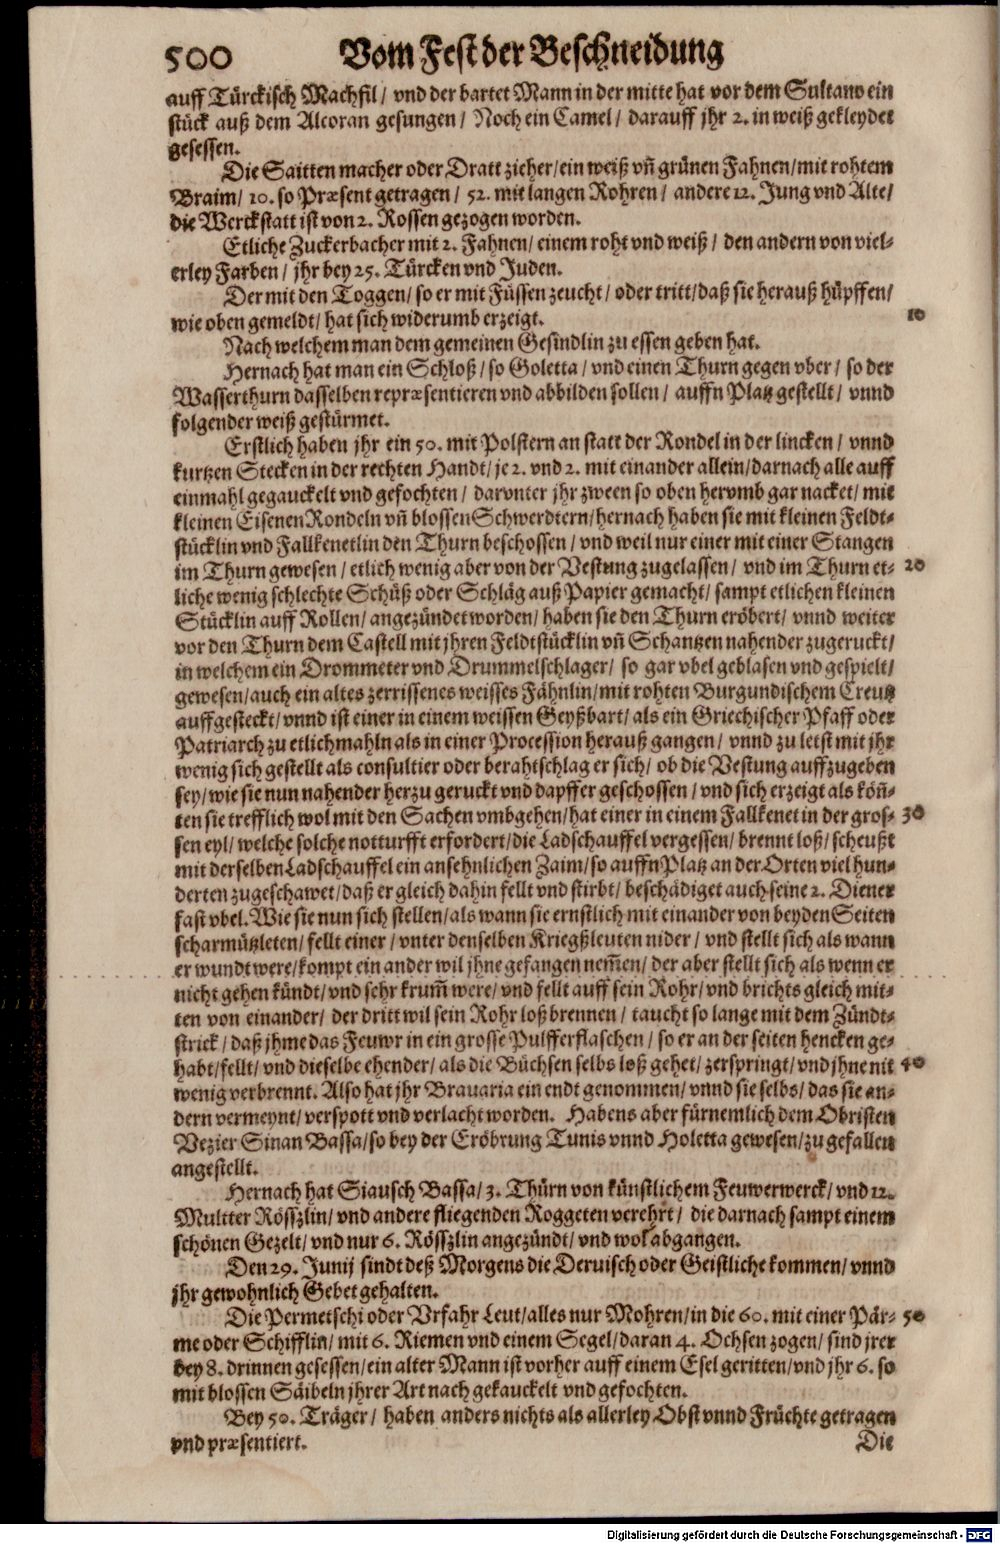 500 Vom Fest der Beschneidung
auff Türckisch Machfil / vnd der bartet Mann in der mitte hat vor dem Sultano ein
stück auß dem Alcoran gesungen / Noch ein Camel / darauff jhr 2. in weiß gekleydet
gesessen.
Die Saitten macher oder Dratt zieher / ein weiß vñ grünen Fahnen / mit rohtem
Braim / 10. so Præsent getragen / 52. mit langen Rohren / andere 12. Jung vnd Alte /
die Werckstatt ist von 2. Rossen gezogen worden.
Etliche Zuckerbacher mit 2. Fahnen / einem roht vnd weiß / den andern von viel-
erley Farben / jhr bey 25. Türcken vnd Juden.
Der mit den Toggen / so er mit Füssen zeucht / oder tritt / daß sie herauß hüpffen /
wie oben gemeldt / hat sich widerumb erzeigt. 10
Nach welchem man dem gemeinen Gesindlin zu essen geben hat.
Hernach hat man ein Schloß / so Goletta / vnd einen Thurn gegen vber / so der
Wasserthurn dasselben repræsentieren vnd abbilden sollen / auffn Platz gestellt / vnnd
folgender weiß gestürmet.
Erstlich haben jhr ein 50. mit Polstern an statt der Rondel in der lincken / vnnd
kurtzen Stecken in der rechten Handt / je 2. vnd 2. mit einander allein / darnach alle auff
einmahl gegauckelt vnd gefochten / darvnter jhr zween so oben hervmb gar nacket / mit
kleinen Eisenen Rondeln vñ blossen Schwerdtern / hernach haben sie mit kleinen Feldt-
stücklin vnd Fallkenetlin den Thurn beschossen / vnd weil nur einer mit einer Stangen
im Thurn gewesen / etlich wenig aber von der Vestung zugelassen / vnd im Thurn et- 20
liche wenig schlechte Schüß oder Schläg auß Papier gemacht / sampt etlichen kleinen
Stücklin auff Rollen / angezündet worden / haben sie den Thurn eröbert / vnnd weiter
vor den Thurn dem Castell mit jhren Feldtstücklin vñ Schantzen nahender zugeruckt /
in welchem ein Drommeter vnd Drummelschlager / so gar vbel geblasen vnd gespielt /
gewesen / auch ein altes zerrissenes weisses Fähnlin / mit rohten Burgundischem Creutz
auffgesteckt / vnnd ist einer in einem weissen Geyßbart / als ein Griechischer Pfaff oder
Patriarch zu etlichmahln als in einer Procession herauß gangen / vnnd zu letst mit jhr
wenig sich gestellt als consultier oder berahtschlag er sich / ob die Vestung auffzugeben
sey / wie sie nun nahender herzu geruckt vnd dapffer geschossen / vnd sich erzeigt als köñ-
ten sie trefflich wol mit den Sachen vmbgehen / hat einer in einem Fallkenet in der gros- 30
sen eyl / welche solche notturfft erfordert / die Ladschauffel vergessen / brennt loß / scheußt
mit derselben Ladschauffel ein ansehnlichen Zaim / so auffn Platz an der Orten viel hun-
derten zugeschawet / daß er gleich dahin fellt vnd stirbt / beschädiget auch seine 2. Diener
fast vbel. Wie sie nun sich stellen / als wann sie ernstlich mit einander von beyden Seiten
scharmützleten / fellt einer / vnter denselben Kriegßleuten nider / vnd stellt sich als wann
er wundt were / kompt ein ander wil jhne gefangen nem̃en / der aber stellt sich als wenn er
nicht gehen kündt / vnd sehr krum̃ were / vnd fellt auff sein Rohr / vnd brichts gleich mit-
ten von einander / der dritt wil sein Rohr loß brennen / taucht so lange mit dem Zündt-
strick / daß jhme das Feuwr in ein grosse Pulfferflaschen / so er an der seiten hencken ge-
habt / fellt / vnd dieselbe ehender / als die Büchsen selbs loß gehet / zerspringt / vnd jhne nit 40
wenig verbrennt. Also hat jhr Brauaria ein endt genommen / vnnd sie selbs / das sie an-
dern vermeynt / verspott vnd verlacht worden. Habens aber fürnemlich dem Obristen
Vezier Sinan Bassa / so bey der Eröbrung Tunis vnnd Holetta gewesen / zu gefallen
angestellt.
Hernach hat Siausch Bassa / 3. Thürn von künstlichem Feuwerwerck / vnd 12.
Multter Rösszlin / vnd andere fliegenden Roggeten verehrt / die darnach sampt einem
schönen Gezelt / vnd nur 6. Rösszlin angezündt / vnd wol abgangen.
Den 29. Junij sindt deß Morgens die Deruisch oder Geistliche kommen / vnnd
jhr gewohnlich Gebet gehalten.
Die Permetschi oder Vrfahr Leut / alles nur Mohren / in die 60. mit einer Pär- 50
me oder Schifflin / mit 6. Riemen vnd einem Segel / daran 4. Ochsen zogen / sind jrer
bey 8. drinnen gesessen / ein alter Mann ist vorher auff einem Esel geritten / vnd jhr 6. so
mit blossen Säibeln jhrer Art nach gekauckelt vnd gefochten.
Bey 50. Träger / haben anders nichts als allerley Obst vnnd Früchte getragen
vnd præsentiert.
Die
Digitalisierung gefördert durch die Deutsche Forschungsgemeinschaft - DFG